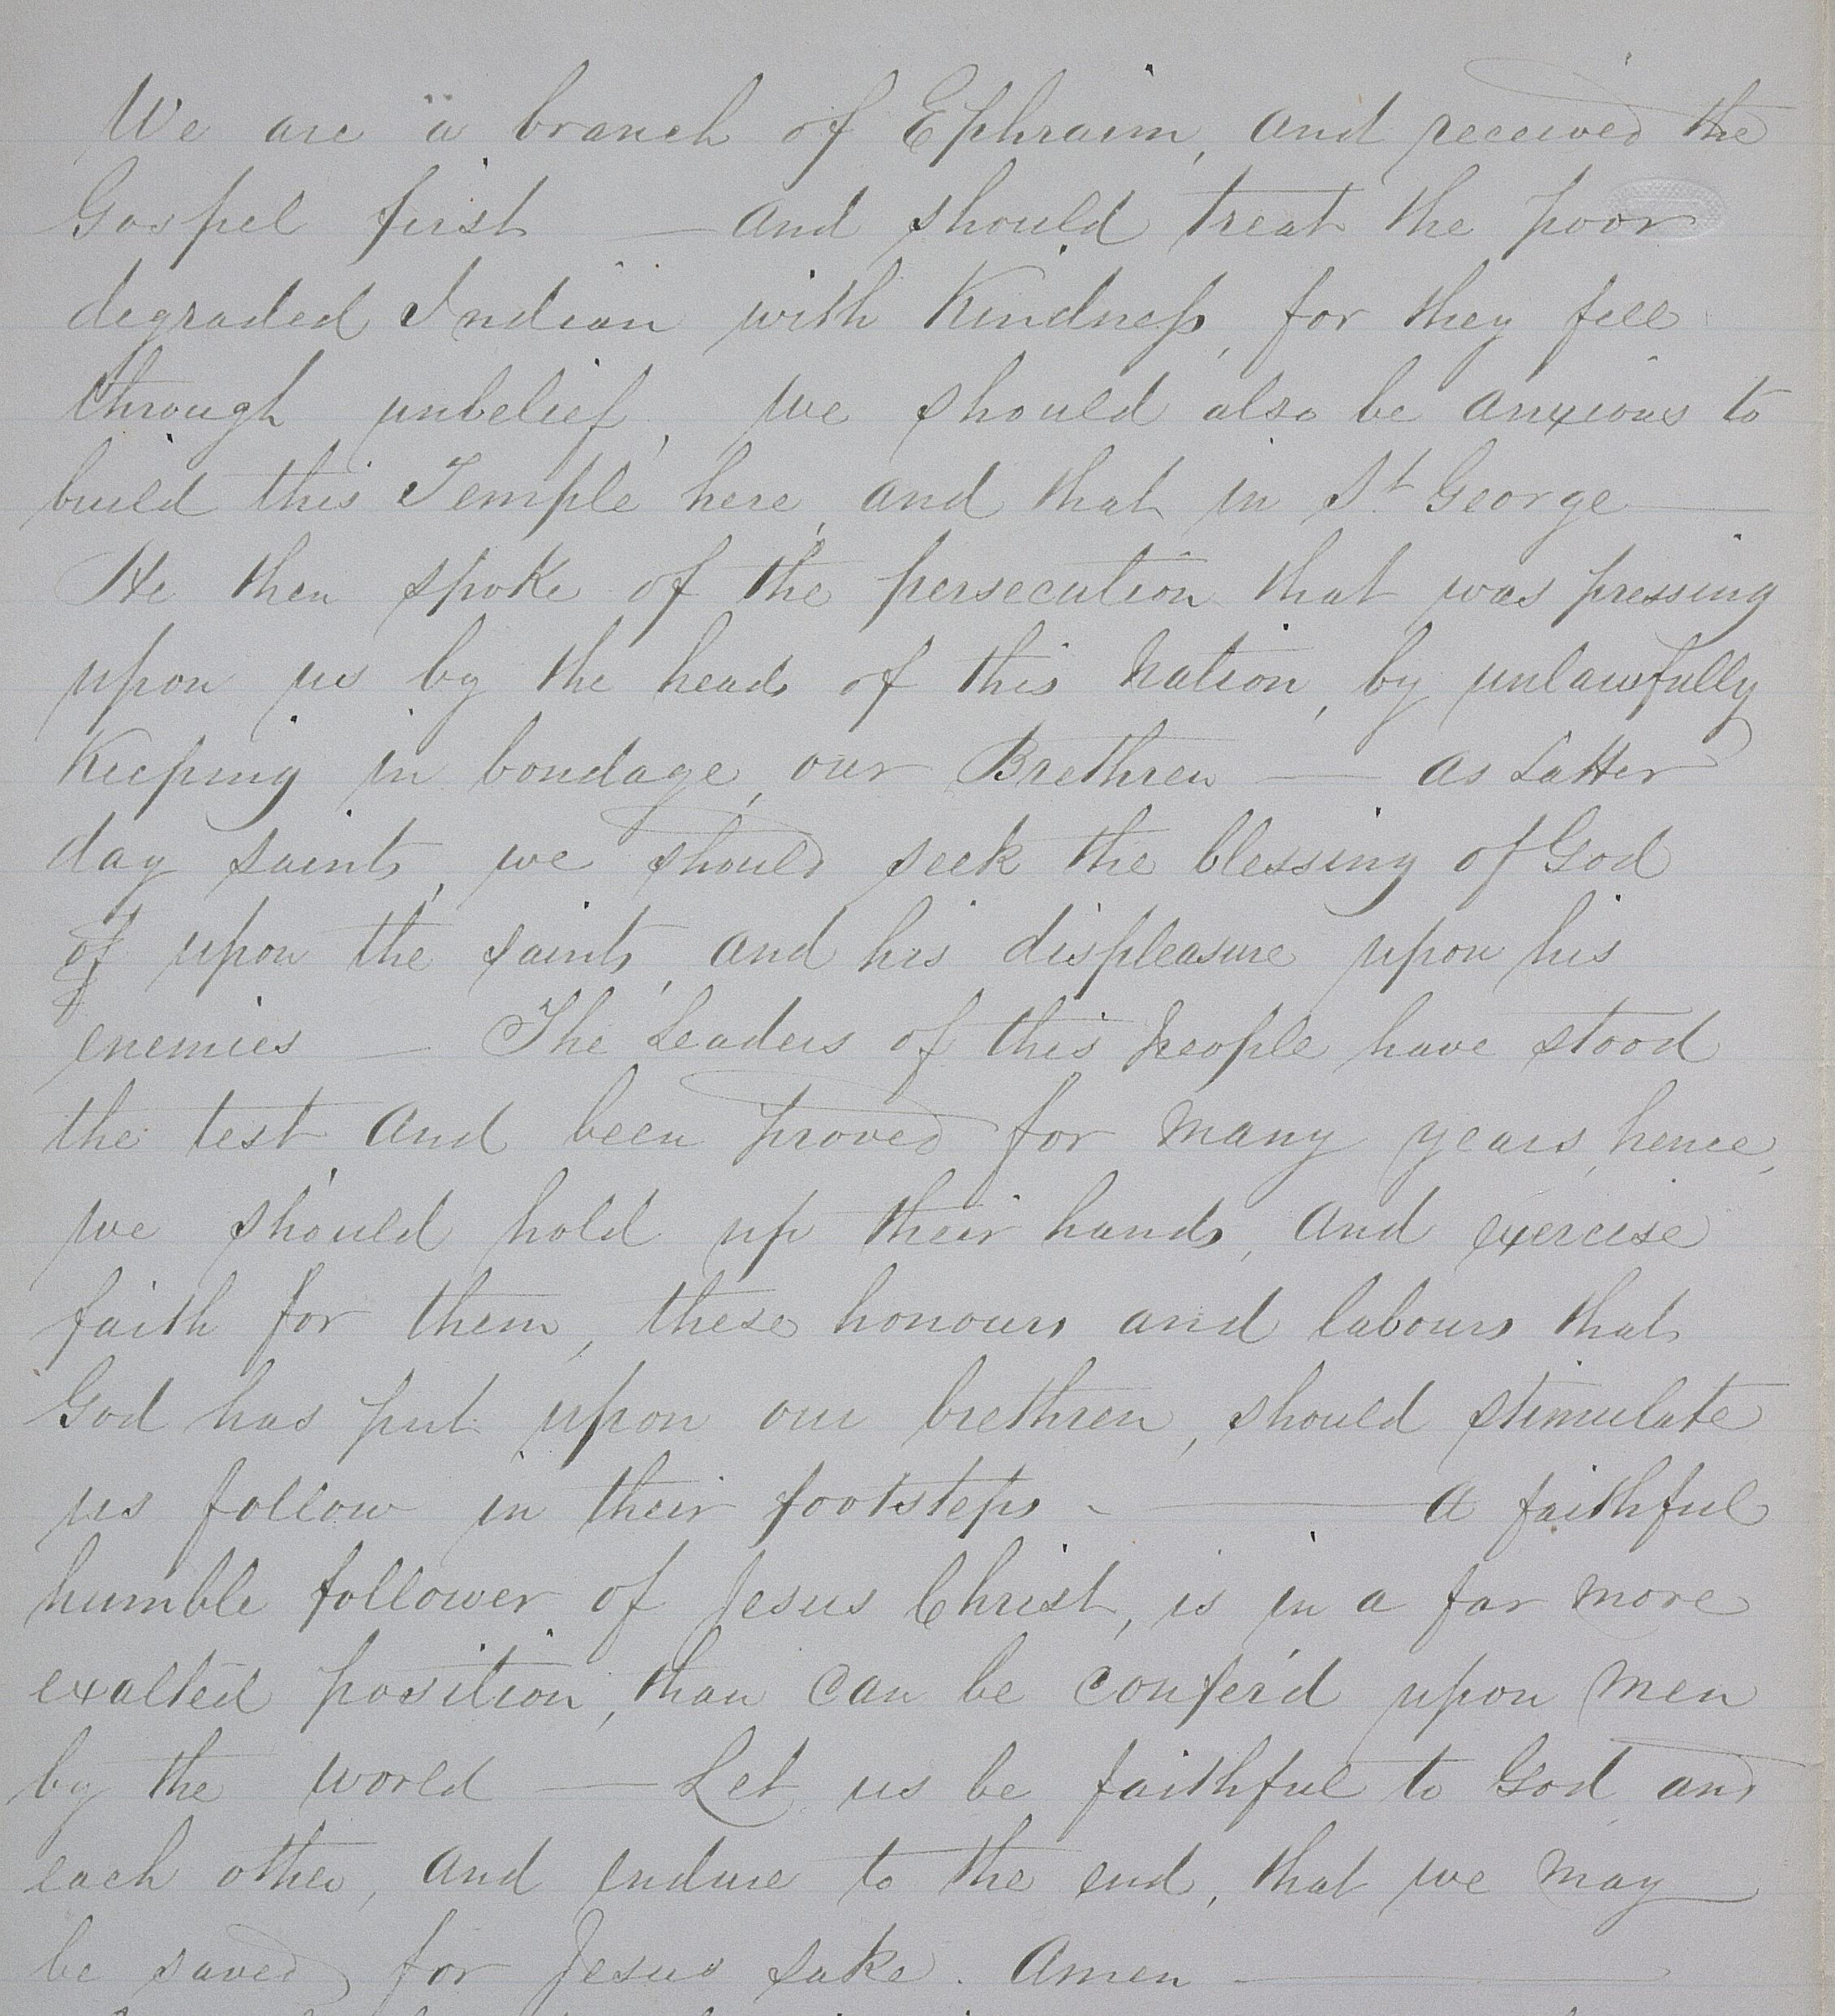 We are a branch of Ephraim, and received the
Gospel first — and should treat the poor
degraded Indian with Kindness, for they fell
through unbelief, we should also be anxious to
build this Temple here, and that in St. George —
He then spoke of the persecution that was pressing
upon us by the heads of this Nation, by unlawfully
Keeping in bondage, our Brethren — as Latter
day saints, we should seek the blessing of God
of upon the saints, and his displeasure upon his
enemies — The Leaders of this people have stood
the test and been proved for many years, hence,
we should hold up their hands, and exercise
faith for them, these honours and labours that
God has put upon our brethren, should stimulate
us follow in their footsteps - — a faithful
humble follower of Jesus Christ, is in a far more
exalted position, than can be confer'd upon men
by the world — Let us be faithful to God and
each other, and endure to the end, that we may
be saved, for Jesus sake. Amen —